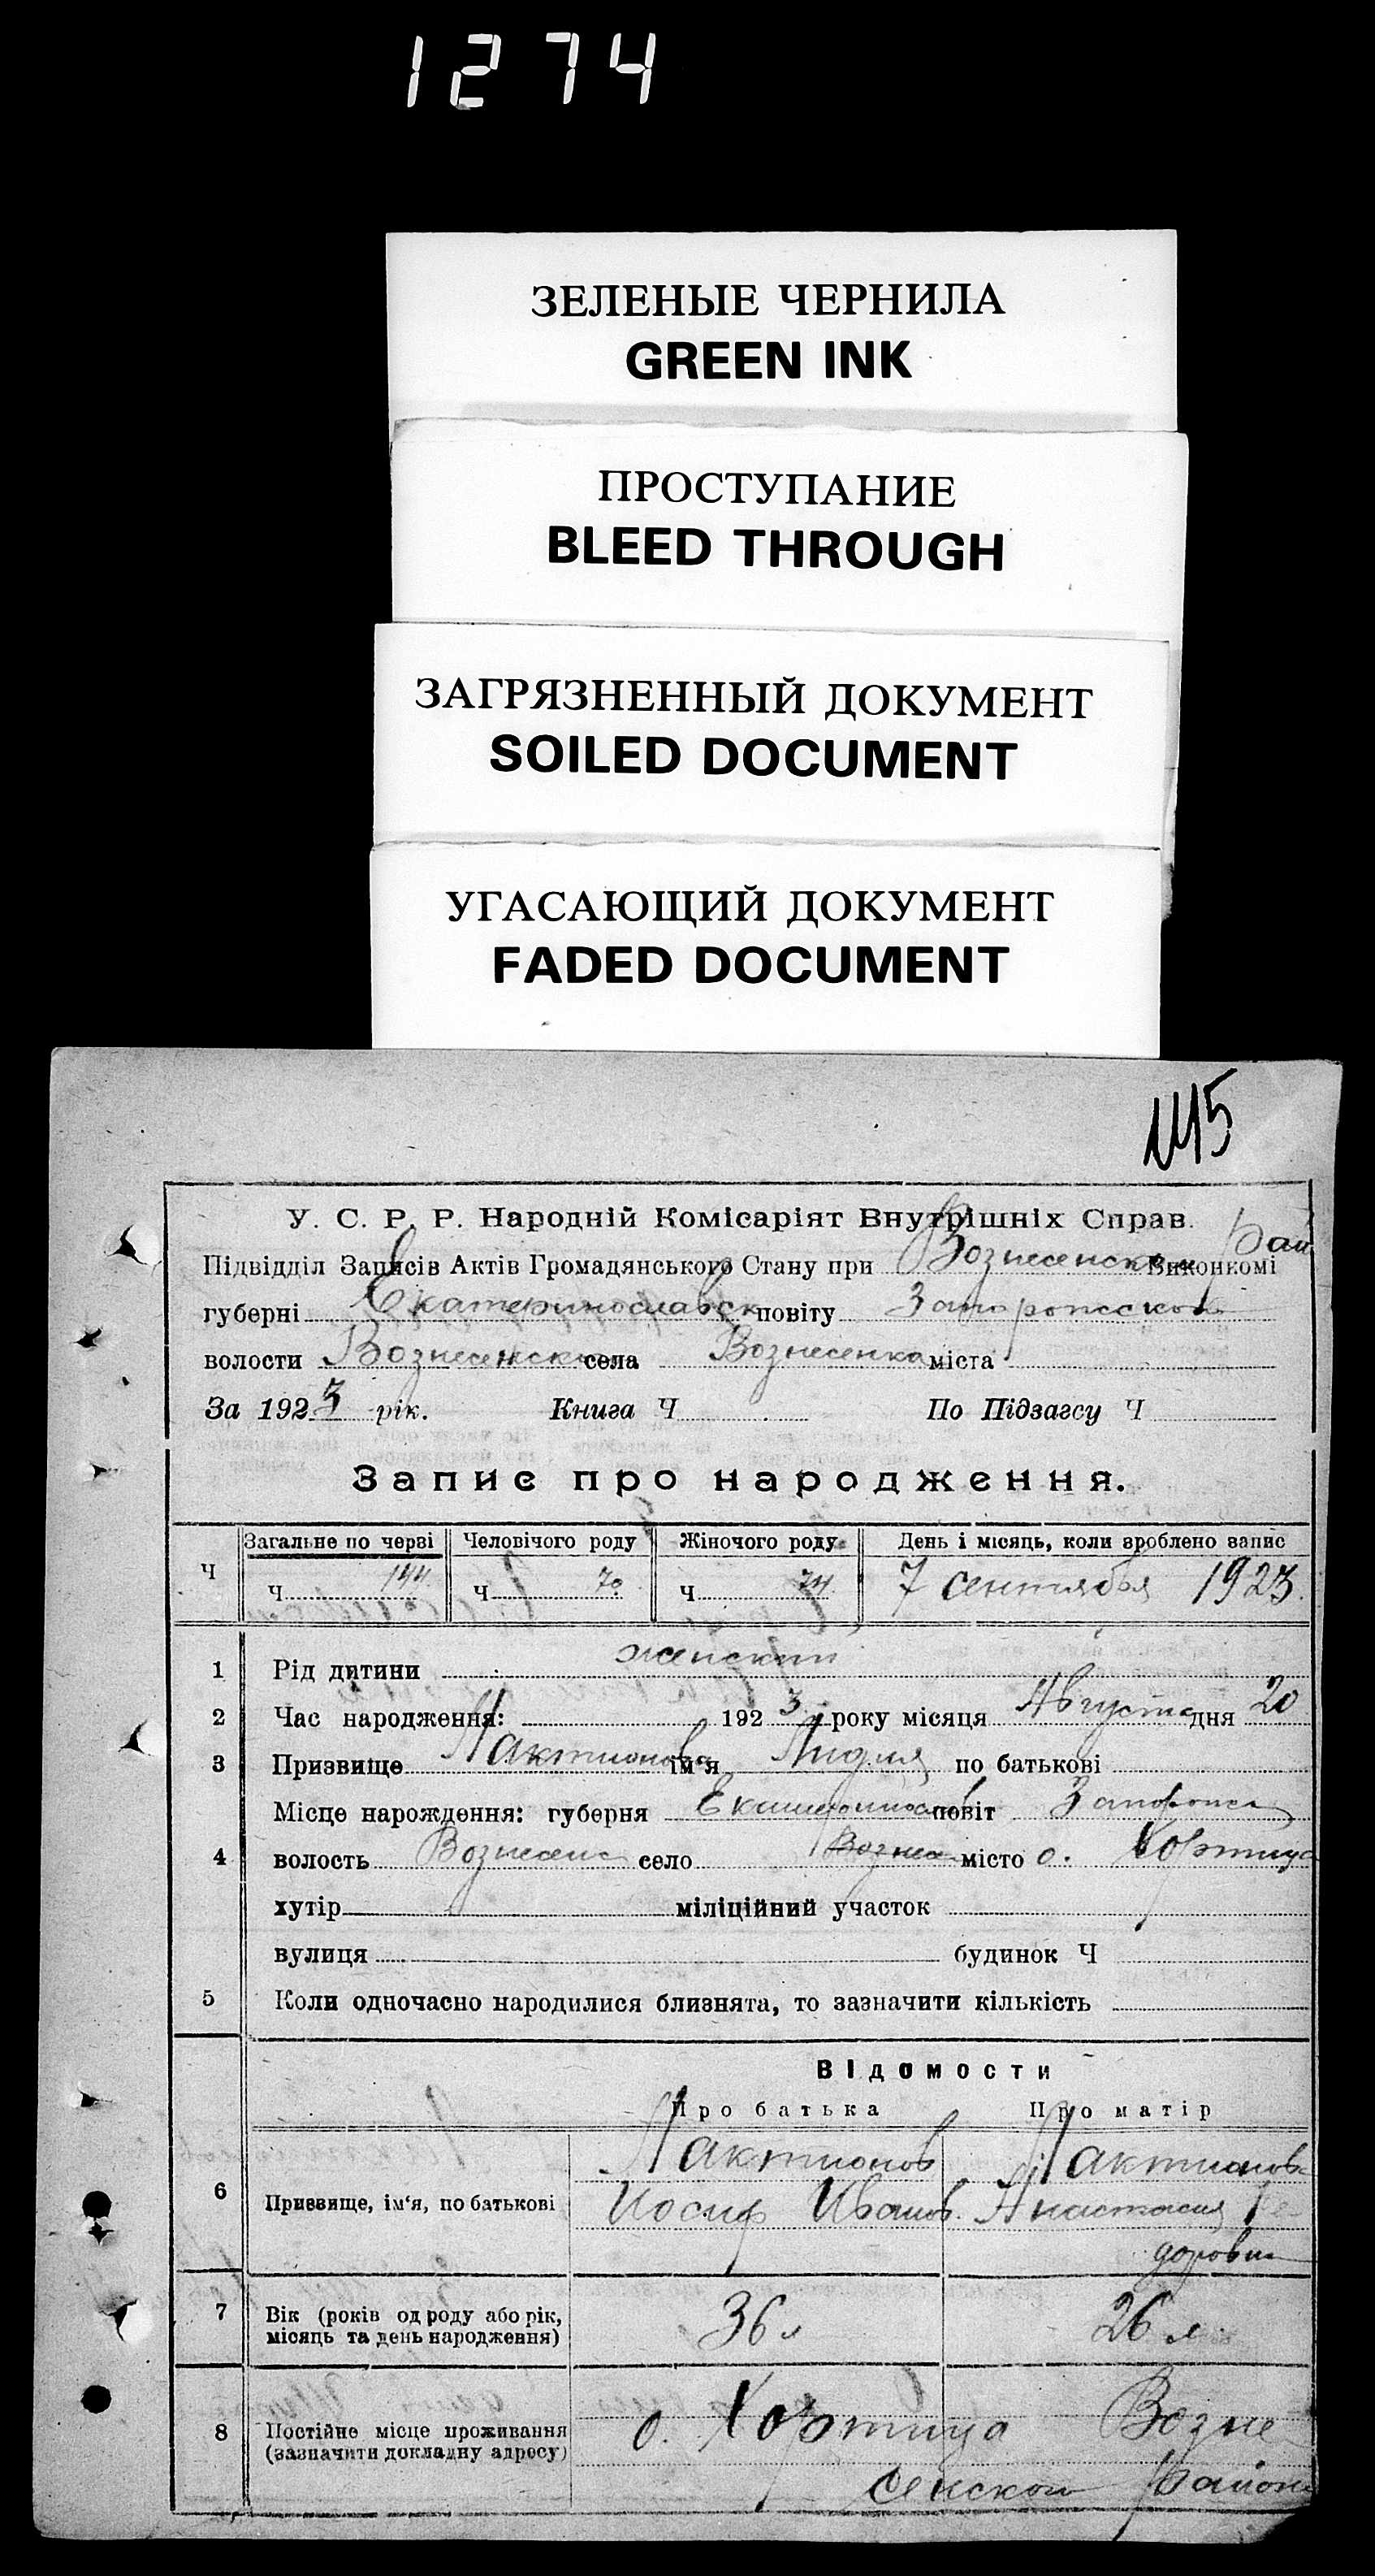 1274
ЗЕЛЕНЫЕ ЧЕРНИЛА
GREEN INK
ПРОСТУПАНИЕ
BLEED THROUGH
ЗАГРЯЗНЕННЫЙ ДОКУМЕНТ
SOILED DOCUMENT
УГАСАЮЩИЙ ДОКУМЕНТ
FADED DOCUMENT
145
У. С. Р. Р. Народній Комісаріят Внутрішніх Справ.
Підвідділ Записів Актів Громадянського Стану при Вознесенском Рай Виконкомі
губерні Екатеринославск повіту Запорожской
волости Вознесенской села Вознесенка міста
За 1923 рік. Книга Ч По Підзагсу Ч
Запис про народження.
Ч Загальне по черзі Человічого роду Жіночого роду День і місяць, коли зроблено запис
Ч 144 Ч 70 Ч 74 7 сентября 1923
1 Рід дитини женский
2 Час народження: 1923 року місяця Августа дня 20
3 Призвище Лактионова ім'я Лидия по батькові
Місце нарождення: губерня Екатеринослав повіт Запорожс
4 волость Вознесенс село Вознес місто о. Хортица
хутір міліційний участок
вулиця будинок Ч
5 Коли одночасно народилися близнята, то зазначити кількість
Відомости
Про батька Про матір
6 Призвище, ім'я, по батькові Лактионов Лактионова
Иосиф Иванов. Анастасия Фе
доровна
7 Вік (років од роду або рік, місяць та день народження) 36 л 26 л
8 Постійне місце проживання (зазначити докладну адресу) о. Хортица Возне
сенской района